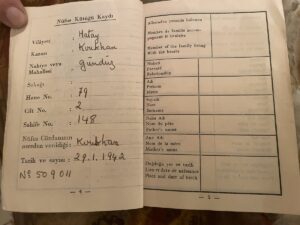 Nüfus Kütüğü Kaydı
Vilâyeti : Hatay
Kazası : Kırıkhan
Nahiye veya
Mahallesi : gündüz
Sokağı :
Hane No. : 79
Cilt No. : 2
Sahife No. : 148
Nüfus Cüzdanının
nereden verildiği : Kırıkhan
Tarih ve sayısı : 29.1.1942
Nº 509011
— 4 —
Ailesinden yanında bulunan
Membre de famille accom-
pagnant le titulaire
Member of the family being
With the bearer
Parenté
Relationship
Adı
Prénom
Name
Soyadı
Nom
Surname
Baba Adı
Nom du père
Father's name
Ana Adı
Nom de la mère
Mother's name
Doğduğu yer ve tarih
Lieu et date de naissance
Place and date of birth
— 5 —